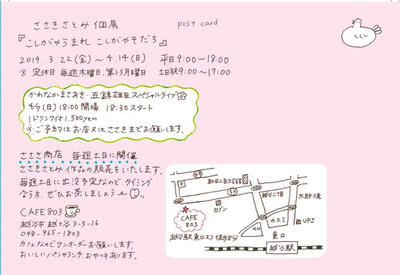 ささきさとみ 個展
post card
『こしがやうまれ こしがやそだち』
2019.3.22(金)〜4.14(日) 平日9:00〜18:00
※定休日 毎週木曜日、第3月曜日 土日祝9:00〜19:00
かわなかまさあき・五錢雄亙スペシャルライブ
4/7(日)18:00開場 18:30スタート
1ドリンク付き 1,500yen
※ご予約はお店又はささきまでお願いします。
ささき商店 毎週土日に開催
ささきさとみ作品の販売をいたします。
毎週土日に出没予定なので タイミング
合う方、ぜひお茶しましょう
CAFE 803
越谷市越ヶ谷3-3-16
048-965-1803
カフェなんでワンオーダーお願いします。
おいしいパンやランチ、おやつもあります。
セブン
越ヶ谷二丁目
カスミ
UFJ
CAFE
803
越谷駅東口より徒歩8分
東口
越谷駅